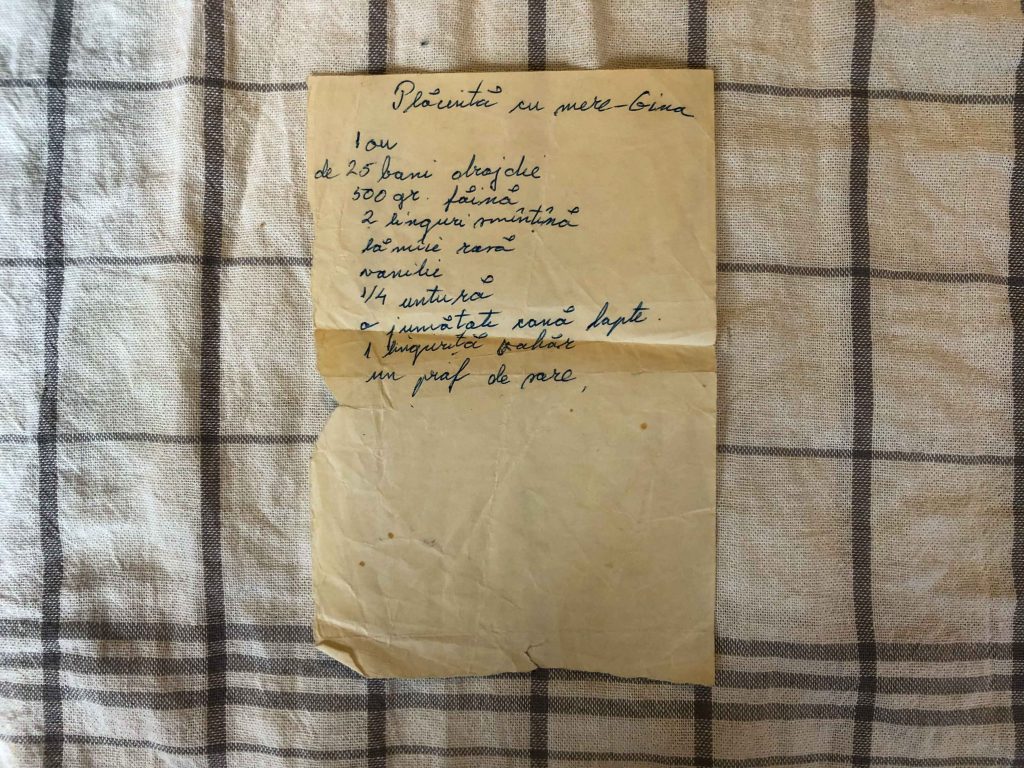 Plăcintă cu mere-Gina
1 ou
de 25 bani drojdie
500 gr. făină
2 linguri smîntînă
lămîie rasă
vanilie
1/4 untură
o jumătate cană lapte.
1 linguriță zahăr
un praf de sare,